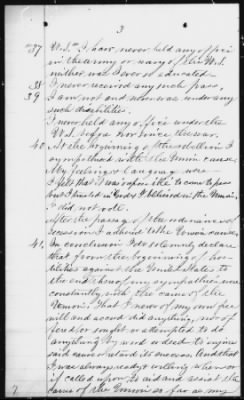 3
37 U.S. I have never held any office
in the army or navy of the U.S.
neither was I ever so educated
38 I never received any such pass.
39 I am not and never was under any
such disabilities.
I never held any office under the
U.S. before nor since the war.
40 At the beginning of the rebellion I
sympathised with the Union cause.
My feelings & language were
I felt that it was to come to pass
but I trusted in God & believed in the Union,
I did not vote.
After the passage of the ordinance of
secession I adhered to the Union cause,
41 In conclusion I do solemnly declare
that from the beginning of hos-
tilities against the United States to
the end thereof my sympathies were
constantly with the cause of the
Union. That I never of my own free
will and accord did anything, nor of-
fered, or sought or attempted to do
anything by word or deed to injure
said cause or retard its success, and that
I was always ready & willing when or
if called upon to aid and assist the
cause of the Union so far as my